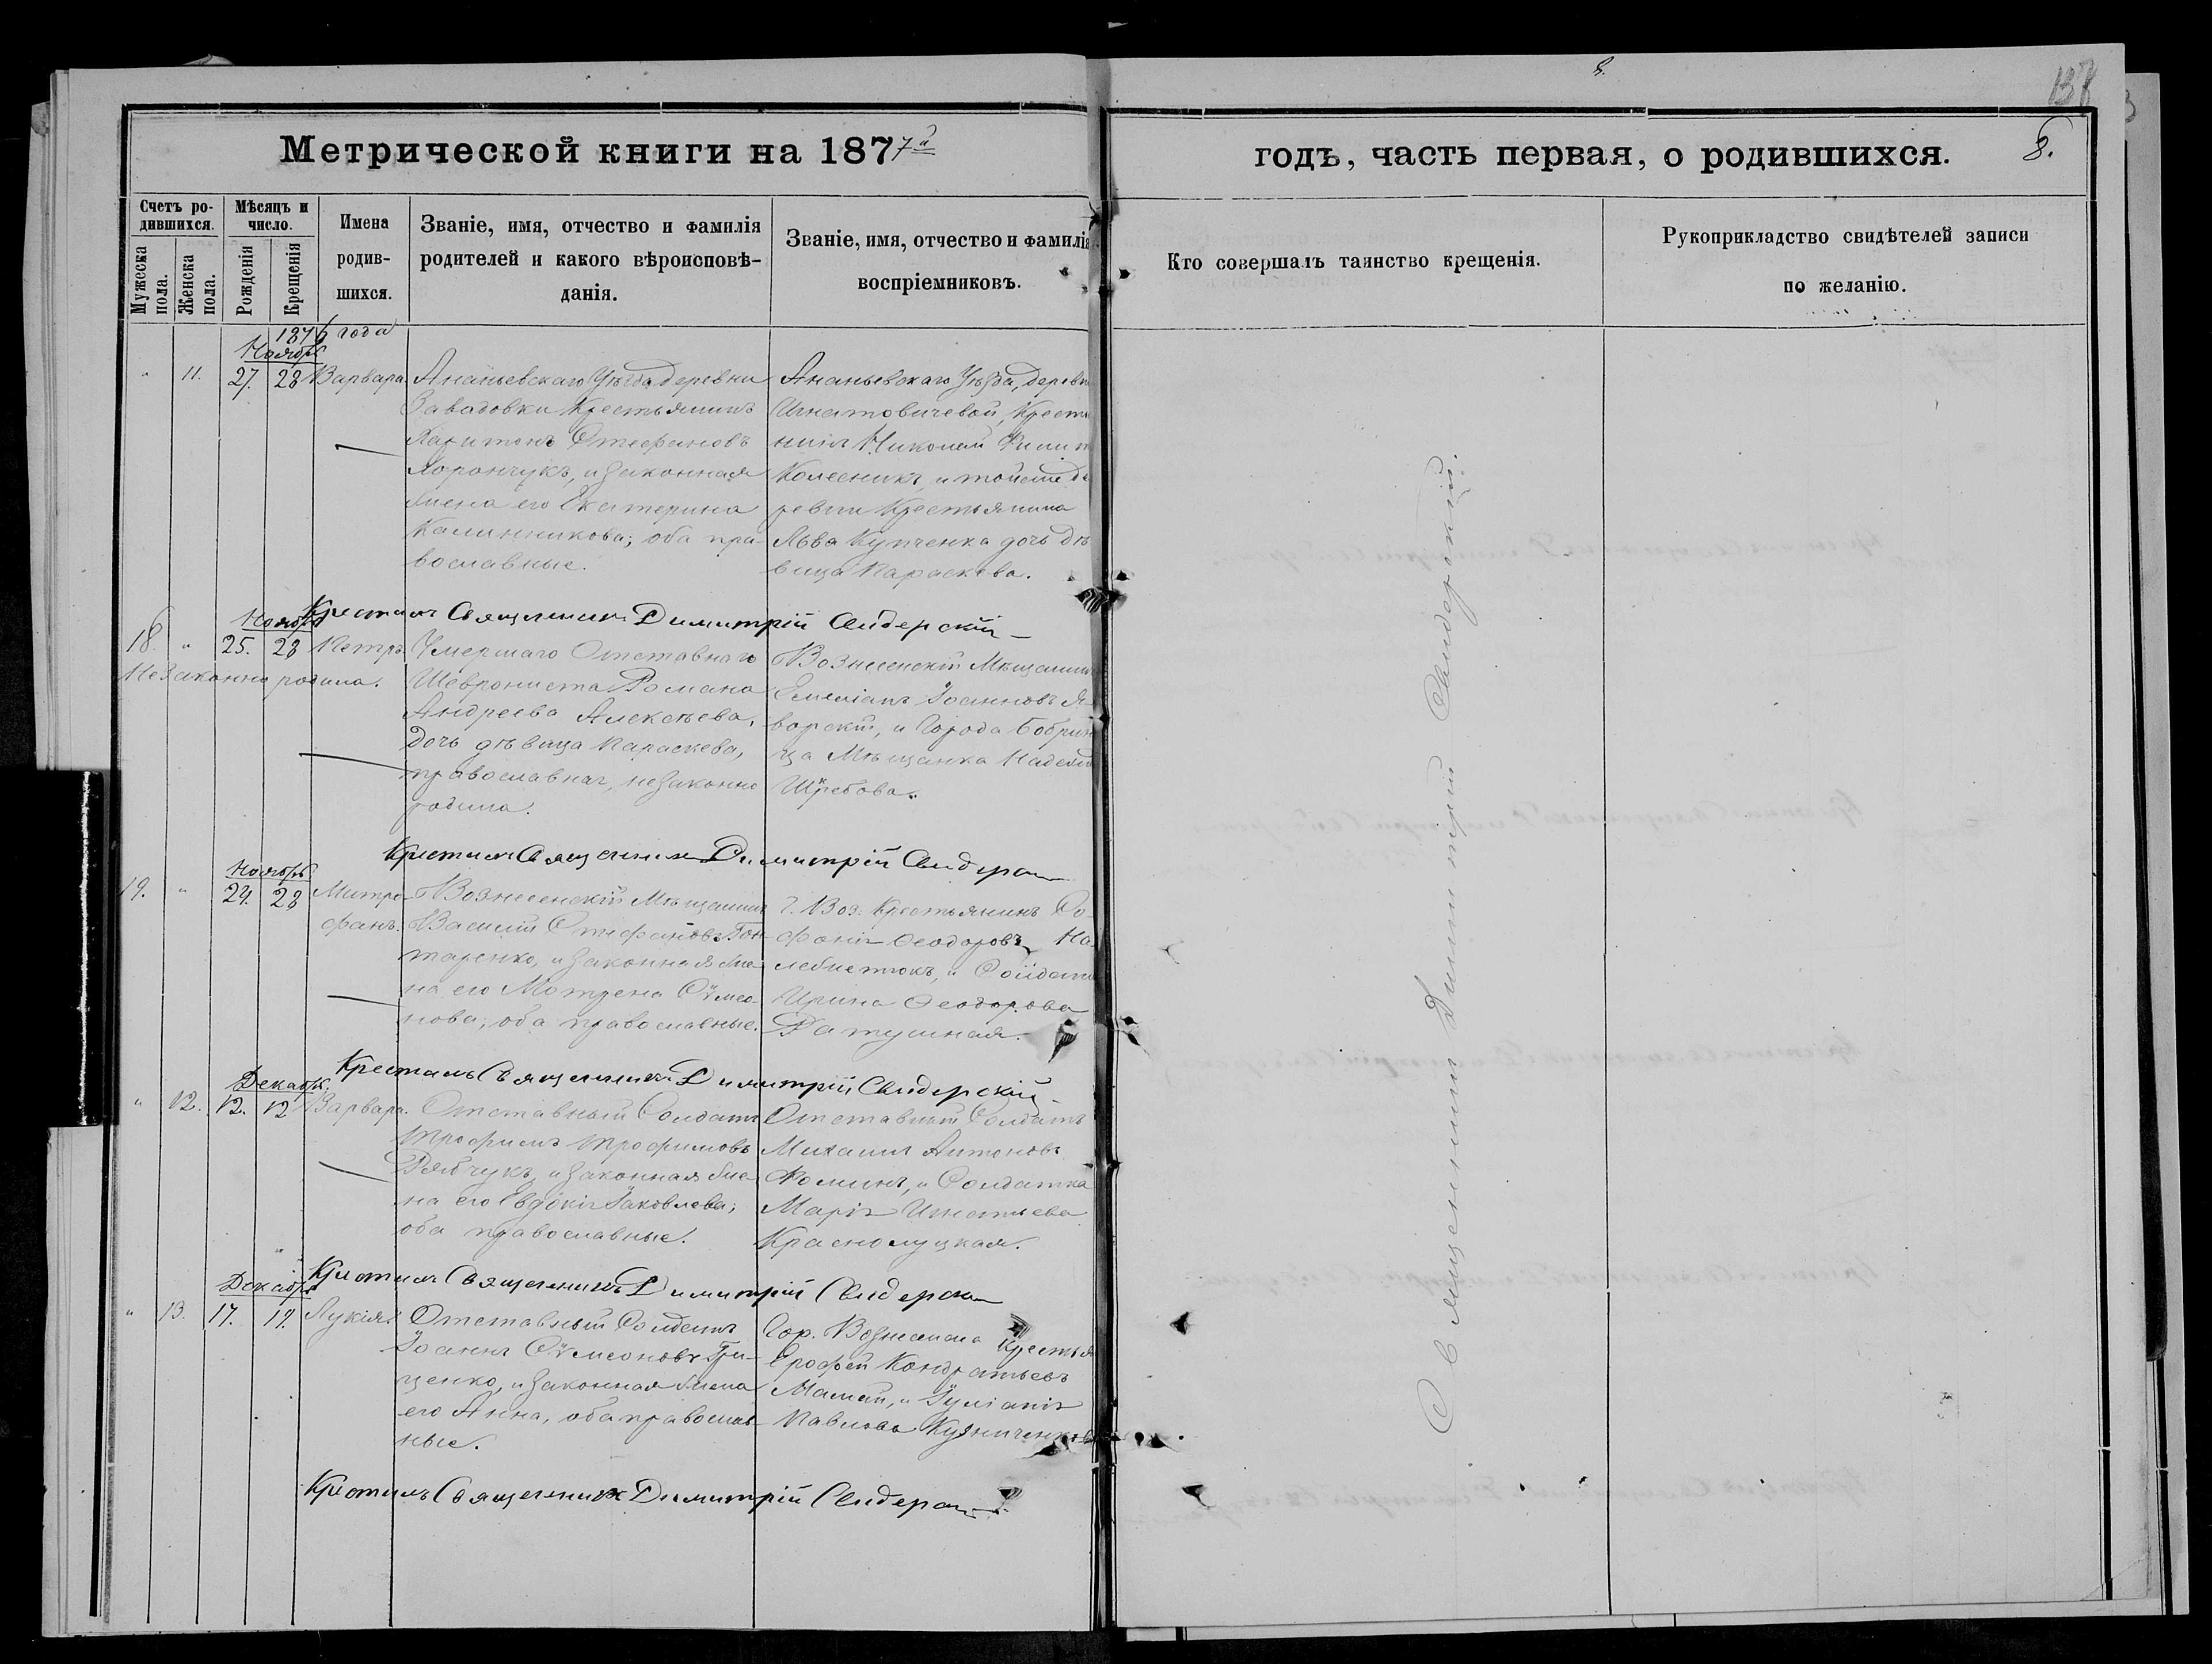 8.
138
Метрической книги на 1877й
годъ, часть первая, о родившихся.
8.
Счетъ родившихся.
Мужеска пола.
Женска пола.
Мѣсяцъ и число.
Рожденія
Крещенія
Имена родив-
шихся.
Званіе, имя, отчество и фамилія
родителей и какого вѣроисповѣ-
данія.
Званіе, имя, отчество и фамилія
воспріемниковъ.
Кто совершалъ таинство крещенія.
Рукоприкладство свидѣтелей записи
по желанію.
1876 года
Ноябрь
" 11. 27. 28 Варвара
Ананьевскаго Уѣзда, деревни
Завадовки Крестьянинъ
Харитонъ Стефановъ
и законная
жена его Екатерина
Калинникова; оба пра-
вославные.
Ананьевскаго Уѣзда, деревни
Игнатовичевой, Кресть
Николай
Колесникъ, и тойже де
ревни Крестьянина
Льва Купченка дочь дѣ
вица Параскева.
Крестилъ Священникъ Димитрій Свидерскій
Ноябрь
18. " 25. 28 Петръ
Незаконно родила.
Умершаго Отставнаго
Шеврониста Романа
Андреева Алексѣева,
дочь дѣвица Параскева,
православная, незаконно
родила.
Вознесенскій Мѣщанинъ
Емеліанъ Іоанновъ Я-
ворскій, и Города Бобрин
ца Мѣщанка Надежда
Крестилъ Священникъ Димитрій Свидерскій
Ноябрь
19. " 24. 28 Митро-
фанъ.
Вознесенскій Мѣщанинъ
Василій Стефановъ Гон-
таренко, и законная же-
на его Матрена Сѵмео-
нова, оба православные.
Г. Воз. Крестьянинъ Со-
фоній Ѳеодоровъ На
и Солдатка
Ирина Ѳеодорова
Ратушная.
Крестилъ Священникъ Димитрій Свидерскій
Декабрь.
" 12. 12. 12 Варвара.
Отставный Солдатъ
Трофимъ Трофимовъ
Рябчукъ, и законная же-
на его Евдокія Іаковлева;
оба православные.
Отставный Солдатъ
Михаилъ Антоновъ
Фоминъ, и Солдатка
Марія Игнатьева
Краснолуцкая.
Крестилъ Священникъ Димитрій Свидерскій
Декабрь
" 13. 17. 19. Лукія
Отставный Солдатъ
Іоаннъ Сѵмеоновъ Гри-
ценко, и законная жена
его Анна, оба православ-
ные.
Гор. Вознесенска Крестьян
Ерофей Кондратьевъ
Мамай, и Іуліанія
Павлова Кузниченкова
Крестилъ Священникъ Димитрій Свидерскій
Священникъ Димитрій Свидерскій.